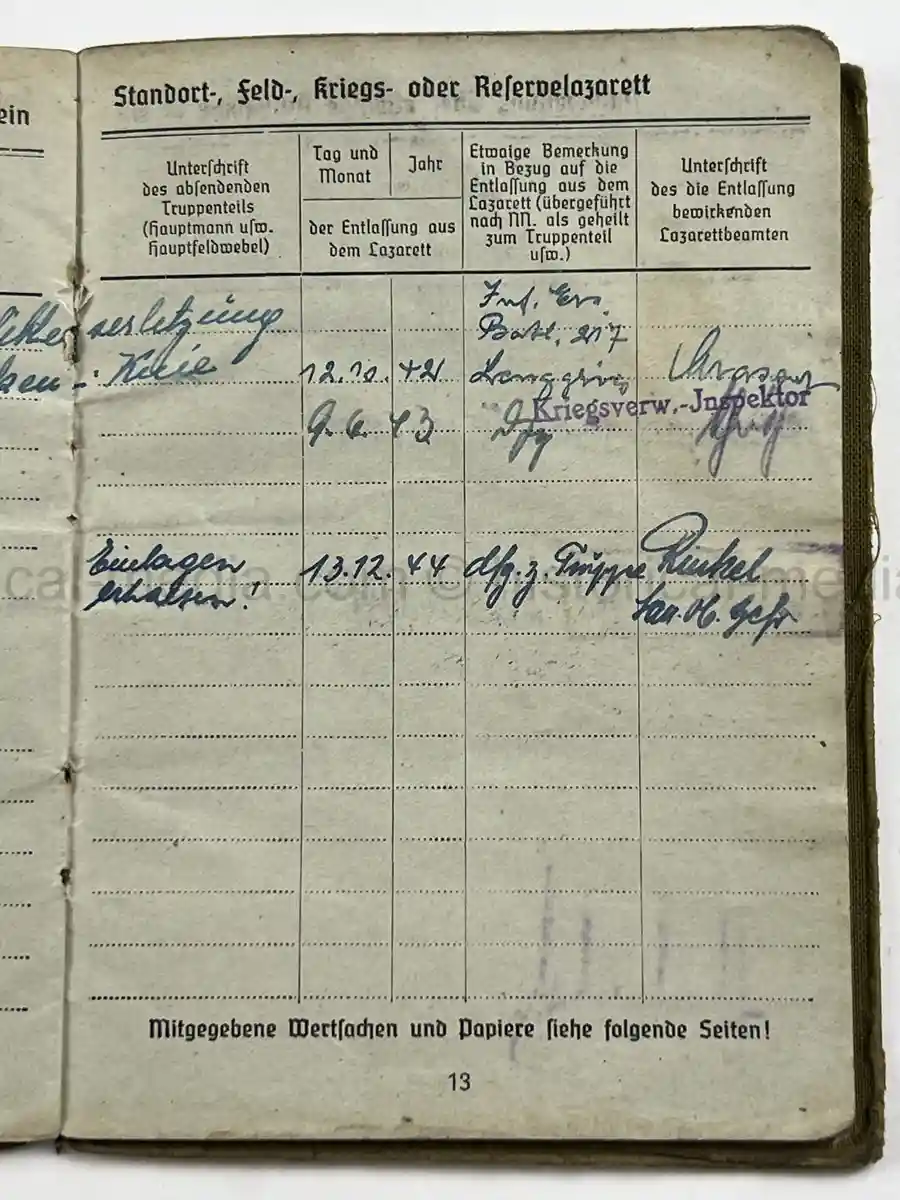 ein
Standort-, Feld-, Kriegs- oder Reservelazarett
Unterschrift
des absendenden
Truppenteils
(Hauptmann usw.
Hauptfeldwebel)
Tag und
Monat
Jahr
der Entlassung aus
dem Lazarett
Etwaige Bemerkung
in Bezug auf die
Entlassung aus dem
Lazarett (übergeführt
nach NN. als geheilt
zum Truppenteil
usw.)
Unterschrift
des die Entlassung
bewirkenden
Lazarettbeamten
verletzung
Inf. Ers.
Batl. 217
Knie 12.10. 42 Lenggries
Kriegsverw.-Inspektor
9.6. 43 Dfg
Einlagen 13.12. 44 dfg. z. Truppe Rinkel
erhalten! San. Ob. Gefr
Mitgegebene Wertsachen und Papiere siehe folgende Seiten!
13